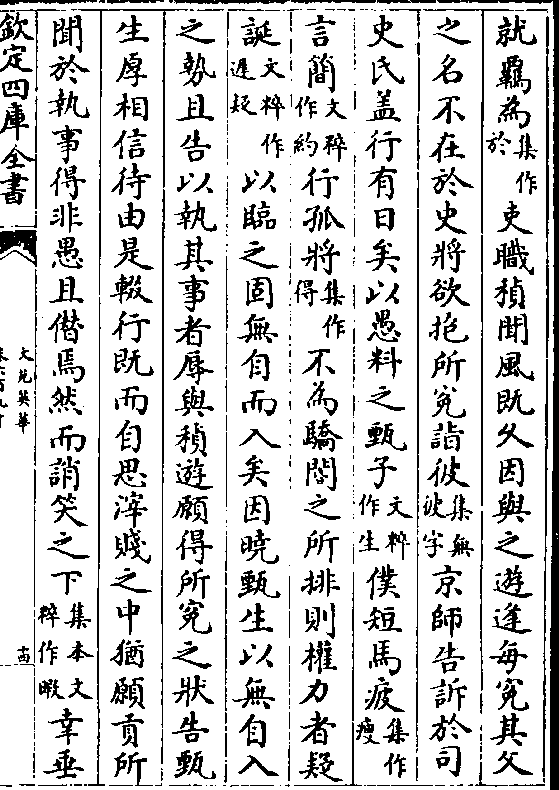 就羈為集作於吏職稹聞風既乆因與之遊逢每寃其父
之名不在於史將欲抱所寃詣彼集無彼字京師告訴於司
史氏盖行有日矣以愚料之甄子文粹作生僕短馬疲集作瘦
言簡文粹作約行孤將集作得不為驕閽之所排則權力者疑
誕文粹作遲疑以臨之固無自而入矣因曉甄生以無自入
之勢且告以執其事者辱與稹遊願得所寃之狀告甄
生厚相信待由是輟行既而自思滓賤之中猶願貢所
聞於執事得非愚且僭焉然而誚笑之下集本文粹作暇幸垂
欽定四庫全書
文苑英華
十四